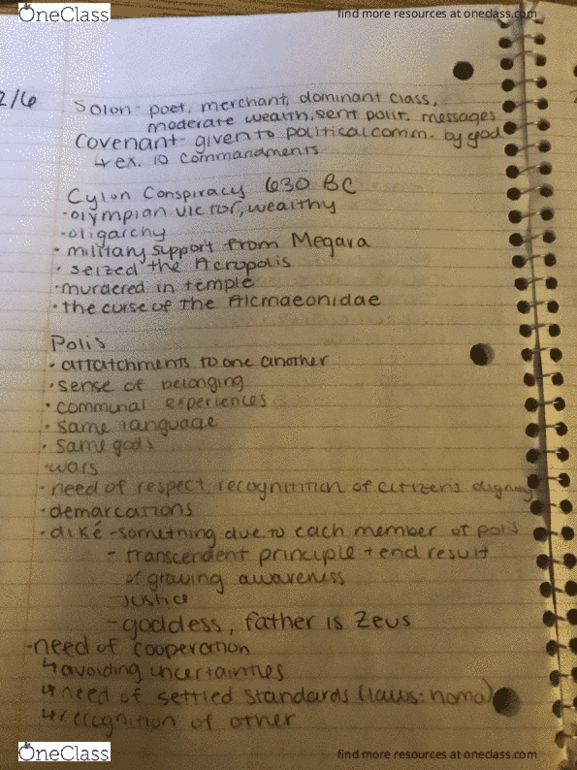 OneClass
find more resources at oneclass.com
2/6
Solon- poet, merchant, dominant class,
moderate wealth, sent polit. messages
Covenant- given to political comm. by god
↳ ex. 10 commandments
Cylon Conspiracy 630 BC
·olympian victor, wealthy
·oligarchy
· military support from Megara
· seized the Acropolis
·murdered in temple
·the curse of the Alcmaeonidae
Polis
· attatchments to one another
·sense of belonging
·communal experiences
· same language
· same gods
·wars
·need of respect, recognitition of citizens dignity
·demarcations
·diké-something due to each member of polis
- transcendent principle + end result
of growing awareness
-justice
-goddess, father is Zeus
-need of cooperation
↳avoiding uncertainties
↳need of settled standards (laws: nomoi)
↳recognition of other
OneClass
find more resources at oneclass.com